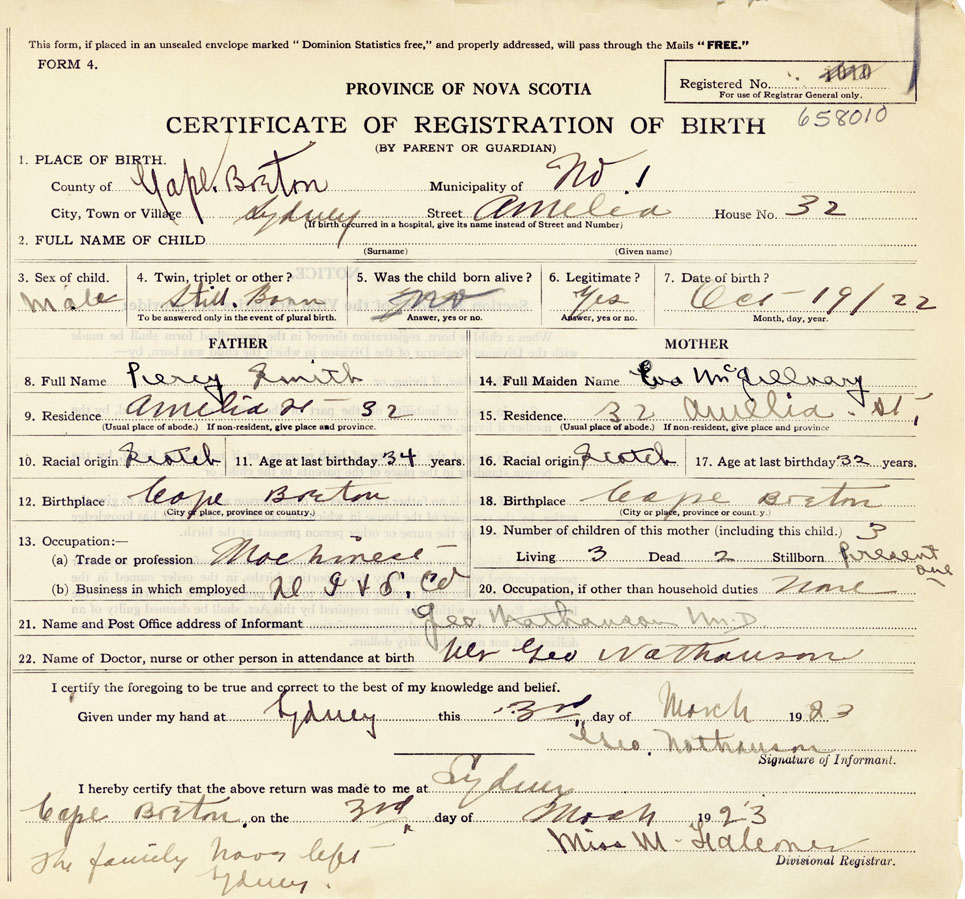 This form, if placed in an unsealed envelope marked "Dominion Statistics free," and properly addressed, will pass through the Mails "FREE."
FORM 4.
Registered No. 1010
For use of Registrar General only.
PROVINCE OF NOVA SCOTIA
658010
CERTIFICATE OF REGISTRATION OF BIRTH
(BY PARENT OR GUARDIAN)
1. PLACE OF BIRTH.
County of Cape Breton Municipality of No. 1
City, Town or Village Sydney Street Amelia House No. 32
(If birth occurred in a hospital, give its name instead of Street and Number)
2. FULL NAME OF CHILD
(Surname) (Given name)
3. Sex of child. 4. Twin, triplet or other? 5. Was the child born alive? 6. Legitimate? 7. Date of birth?
Male Still. Born no Yes Oct 19/22
To be answered only in the event of plural birth. Answer, yes or no. Answer, yes or no. Month, day, year.
FATHER MOTHER
8. Full Name Percy Smith 14. Full Maiden Name Eva McGillvary
9. Residence Amelia St 32 15. Residence. 32 Amelia St,
(Usual place of abode.) If non-resident, give place and province. (Usual place of abode.) If non-resident, give place and province
10. Racial origin Scotch 11. Age at last birthday 34 years. 16. Racial origin Scotch 17. Age at last birthday 32 years.
12. Birthplace Cape Breton 18. Birthplace Cape Breton
(City or place, province or country.) (City or place, province or country.)
13. Occupation:— 19. Number of children of this mother (including this child.) 3
(a) Trade or profession Machinest Living 3 Dead 2 Stillborn Present one
(b) Business in which employed S. Co 20. Occupation, if other than household duties none
21. Name and Post Office address of Informant Geo. Nathanson M.D
22. Name of Doctor, nurse or other person in attendance at birth Dr Geo Nathanson
I certify the foregoing to be true and correct to the best of my knowledge and belief.
Given under my hand at Sydney this 3rd day of March 1923
Geo. Nathanson
Signature of Informant.
I hereby certify that the above return was made to me at Sydney
Cape Breton, on the 3rd day of March 1923
Miss M. Falconer
Divisional Registrar.
The family have left
Sydney.